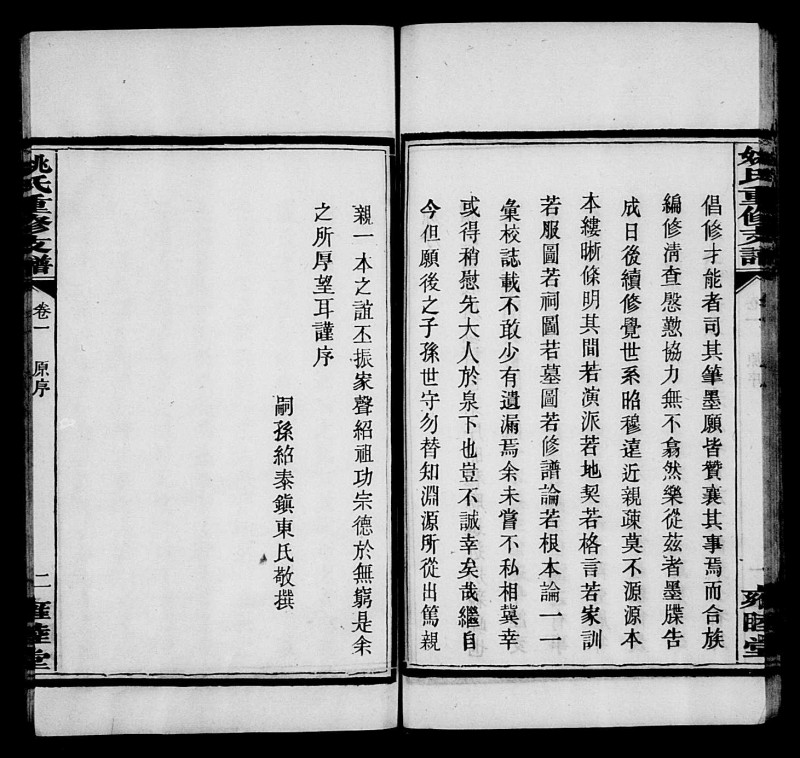 姚氏重修支譜
雍睦堂
倡修才能者司其筆墨願皆贊襄其事焉而合族
編修清查慇懃協力無不翕然樂從茲者墨牒告
成日後續修覺世系昭穆遠近親疎莫不源源本
本縷晰條明其間若演派若地契若格言若家訓
若服圖若祠圖若墓圖若修譜論若根本論一一
彙校誌載不敢少有遺漏焉余未嘗不私相冀幸
或得稍慰先大人於泉下也豈不誠幸矣哉繼自
今但願後之子孫世守勿替知淵源所從出篤親
親一本之誼丕振家聲紹祖功宗德於無窮是余
之所厚望耳謹序
嗣孫紹泰鎮東氏敬撰
姚氏重修支譜
卷一
原序
二
雍睦堂